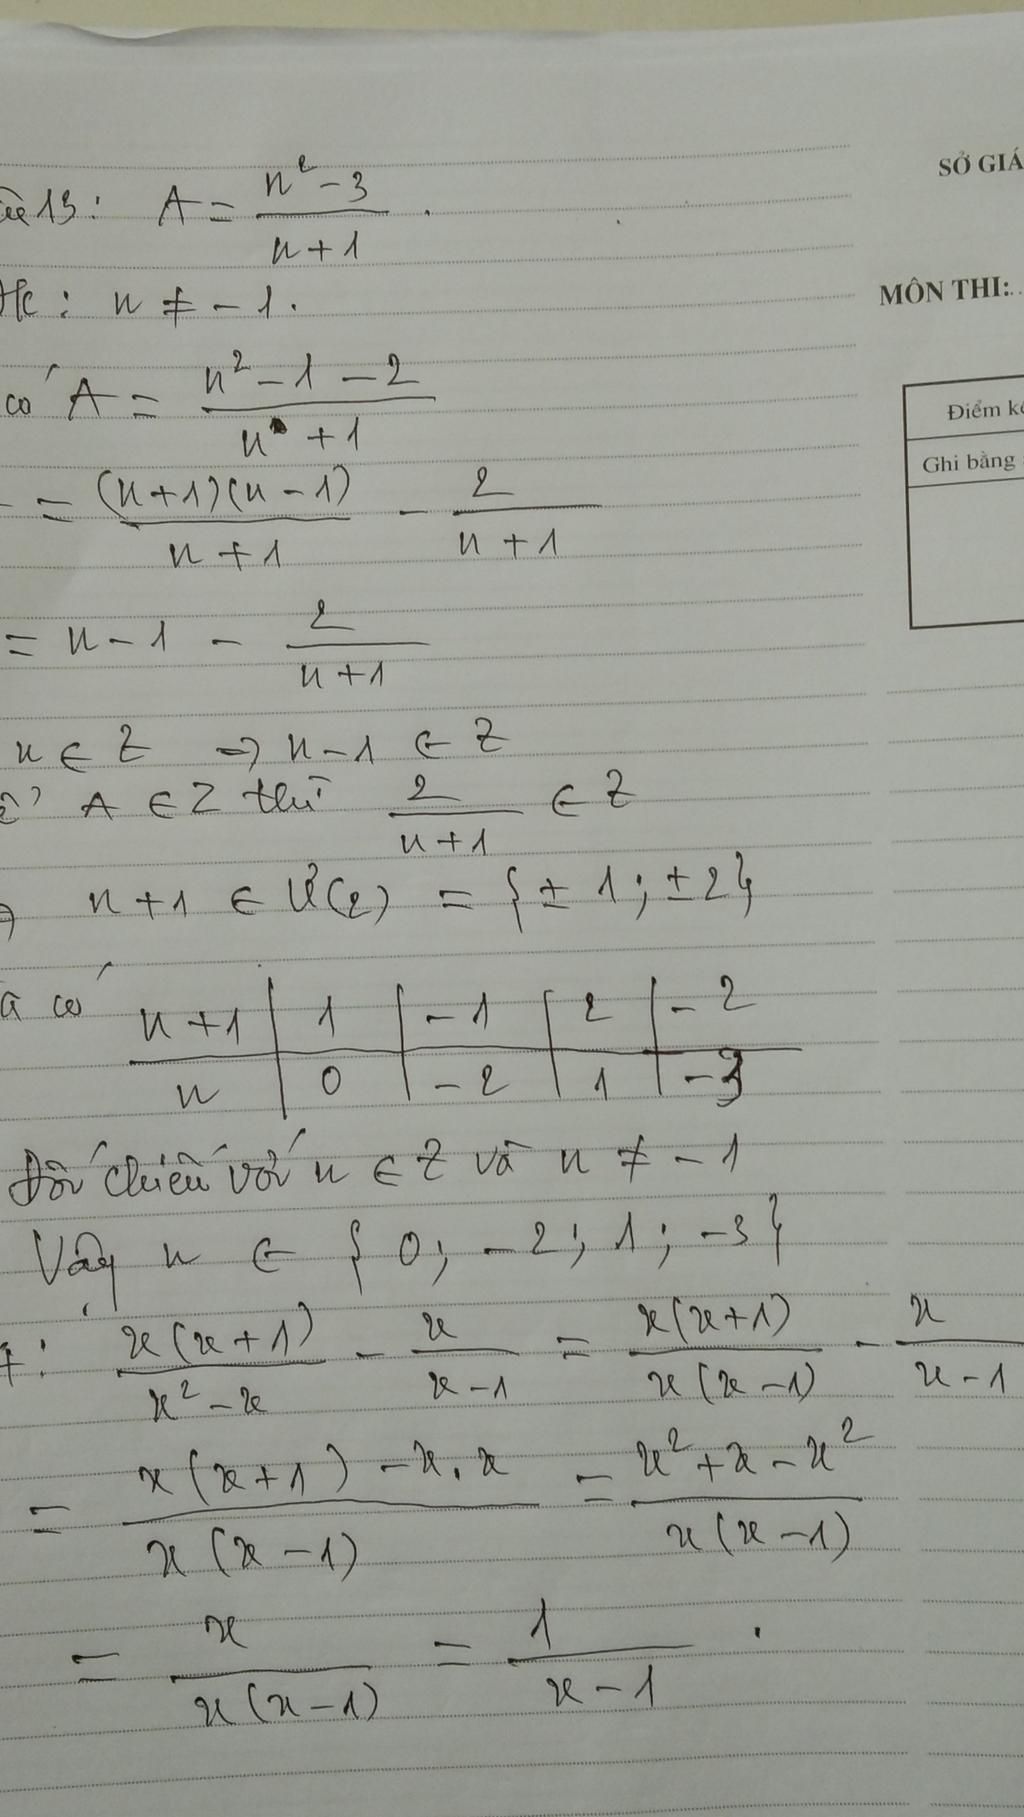 13: A = \frac{n^2 - 3}{n + 1}.
: n ≠ - 1.
có A = \frac{n^2 - 1 - 2}{n + 1}
= \frac{(n+1)(n-1)}{n+1} - \frac{2}{n+1}
= n - 1 - \frac{2}{n+1}
n ∈ Z => n - 1 ∈ Z
A ∈ Z thì \frac{2}{n+1} ∈ Z
n + 1 ∈ Ư(2) = {± 1 ; ± 2}
có
n + 1 | 1 | - 1 | 2 | - 2
n | 0 | - 2 | 1 | - 3
Đối chiếu với n ∈ Z và n ≠ - 1
Vậy n ∈ { 0 ; - 2 ; 1 ; - 3 }
: \frac{x(x+1)}{x^2 - x} - \frac{x}{x-1} = \frac{x(x+1)}{x(x-1)} - \frac{x}{x-1}
= \frac{x(x+1) - x.x}{x(x-1)} = \frac{x^2 + x - x^2}{x(x-1)}
= \frac{x}{x(x-1)} = \frac{1}{x-1}.
SỞ GIÁ
MÔN THI:..
Điểm k
Ghi bằng